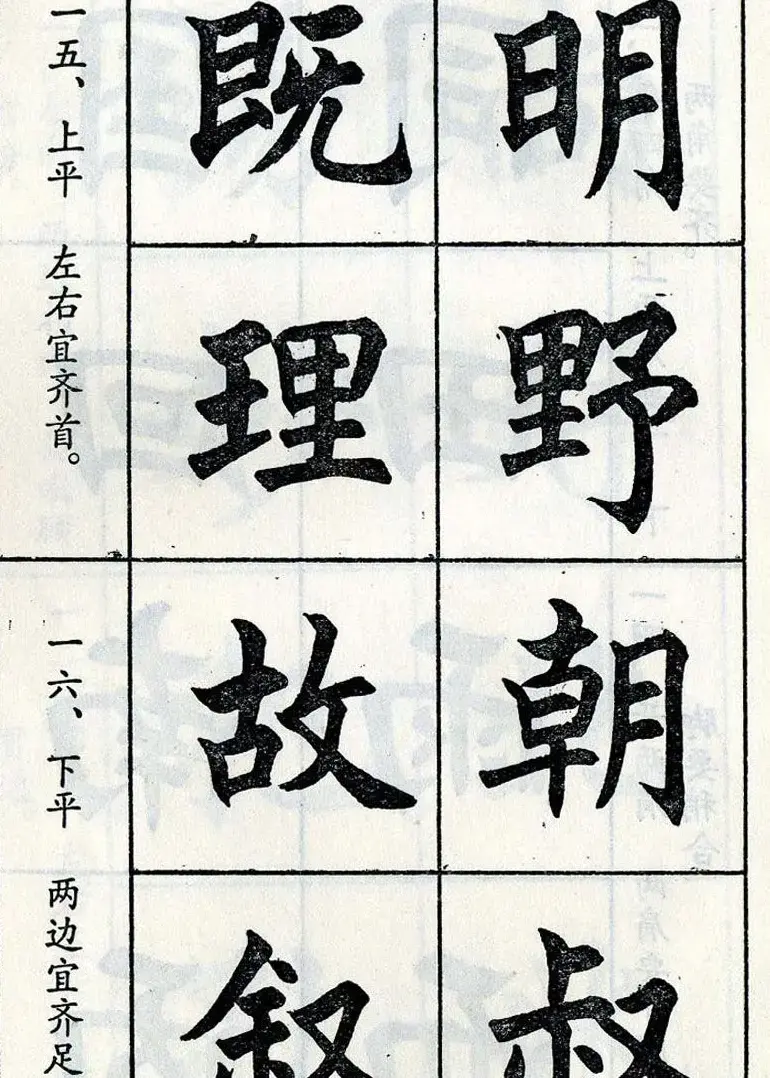 明
野
既
理
一五、上平 左右宜齐首。
朝
叔
故
叙
一六、下平 两边宜齐足